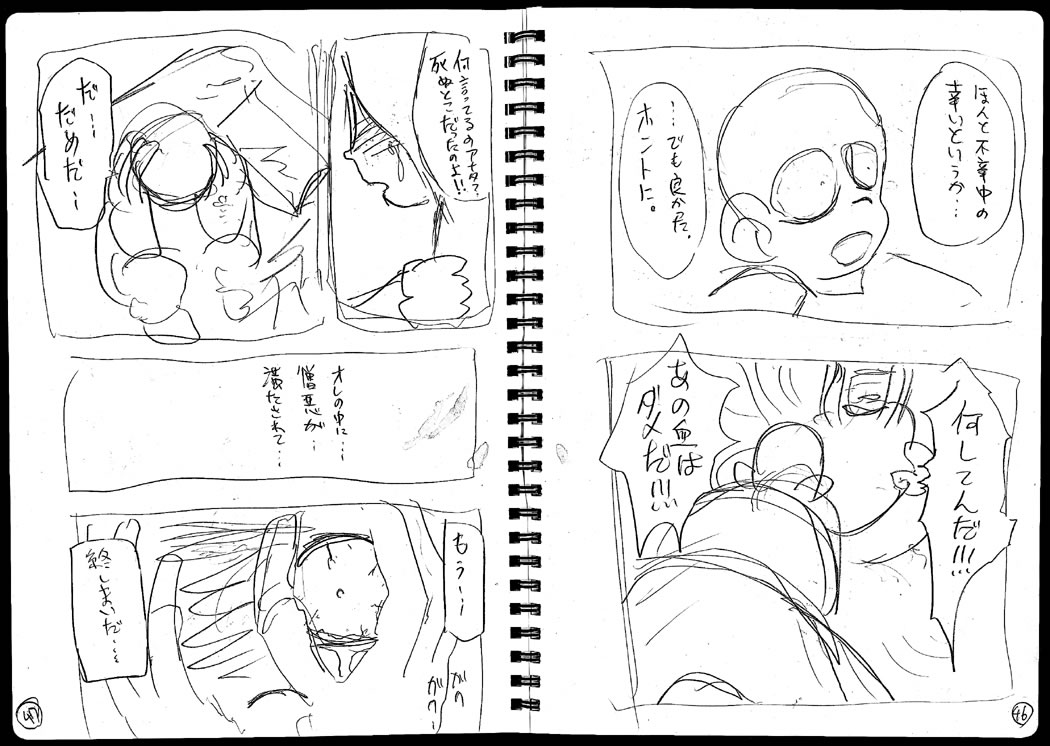 ほんと不幸中の
幸いというか…
…でも良かった。
ホントに。
何してんだ!!!
あの血は
ダメだ!!!
46
何言ってるのアナタ?
死ぬとこだったのよ!!
だ…
だめだ…
オレの中に…
憎悪が…
満たされて…
もう…
ガク
ガク…
終しまいだ…
47